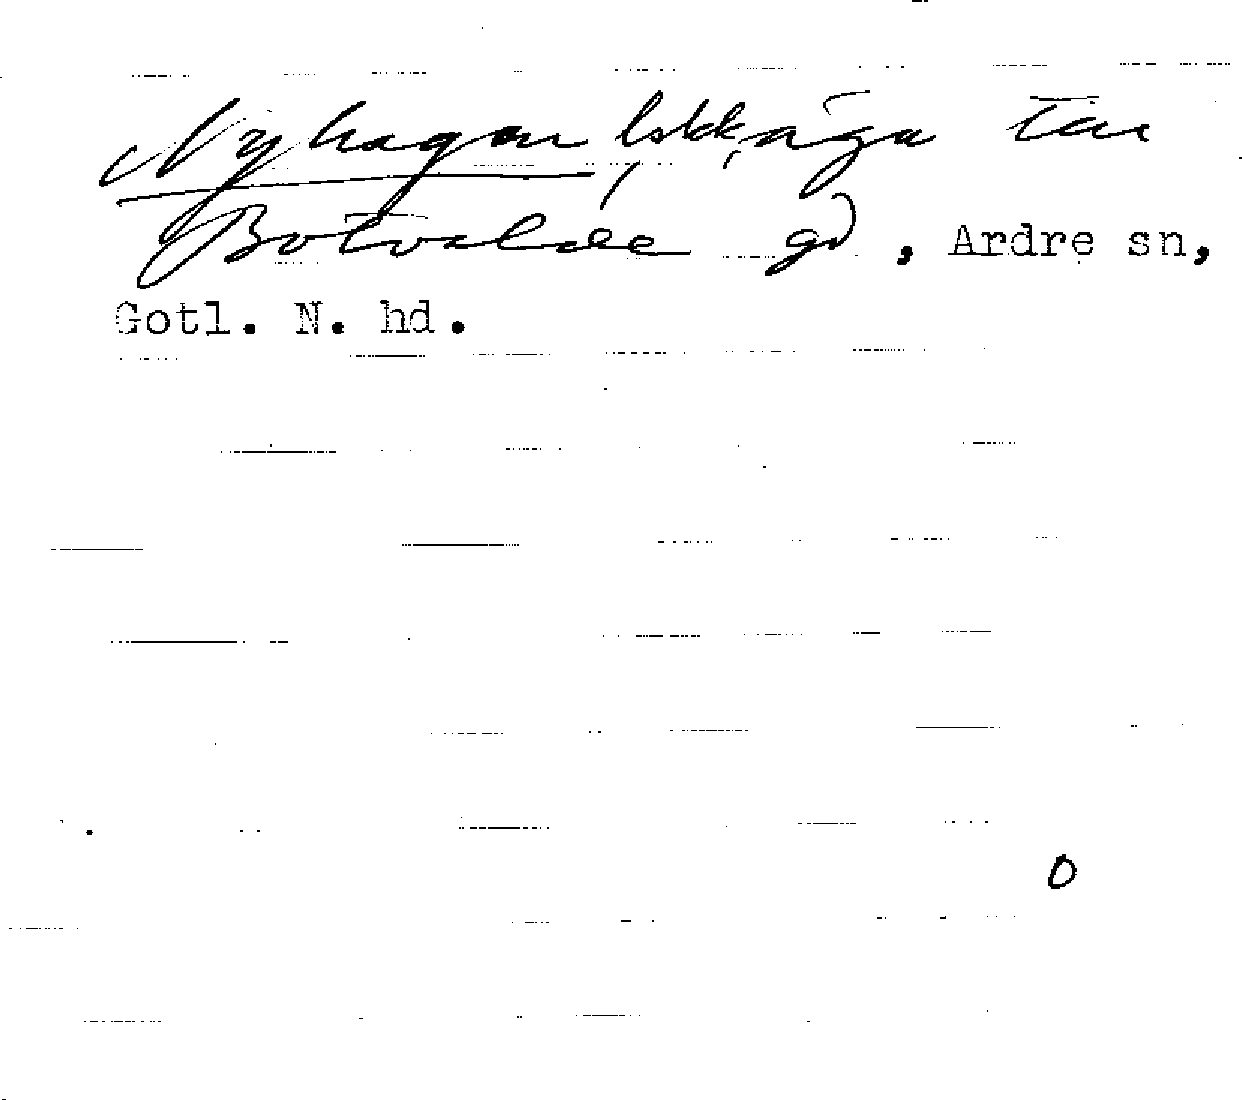 Nyhagen, lskk, äga till
Botvalde gd, Ardre sn,
Gotl. N. hd.
O